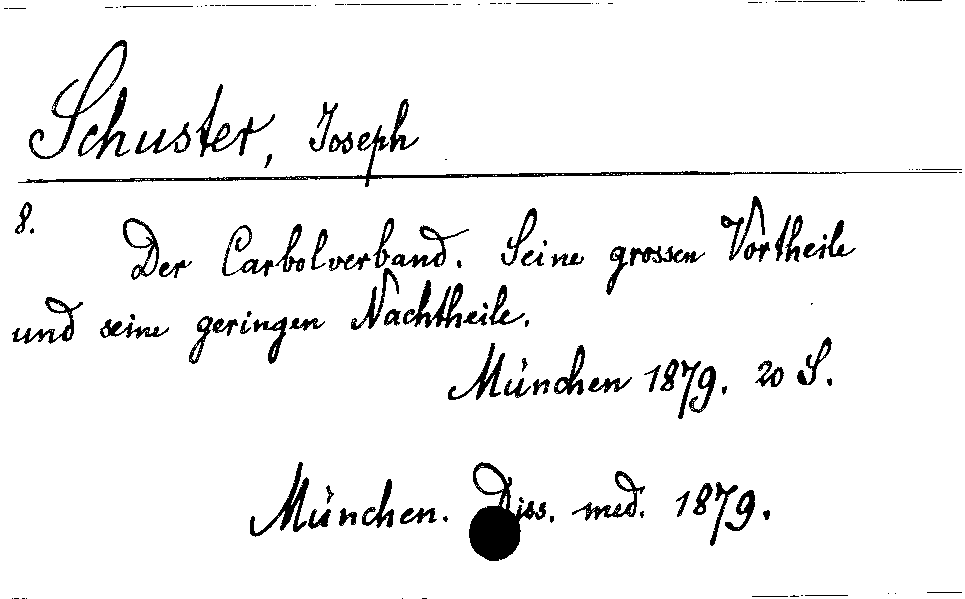 Schuster, Joseph
8.
Der Carbolverband. Seine grossen Vortheile
und seine geringen Nachtheile.
München 1879. 20 S.
München. Diss. med. 1879.